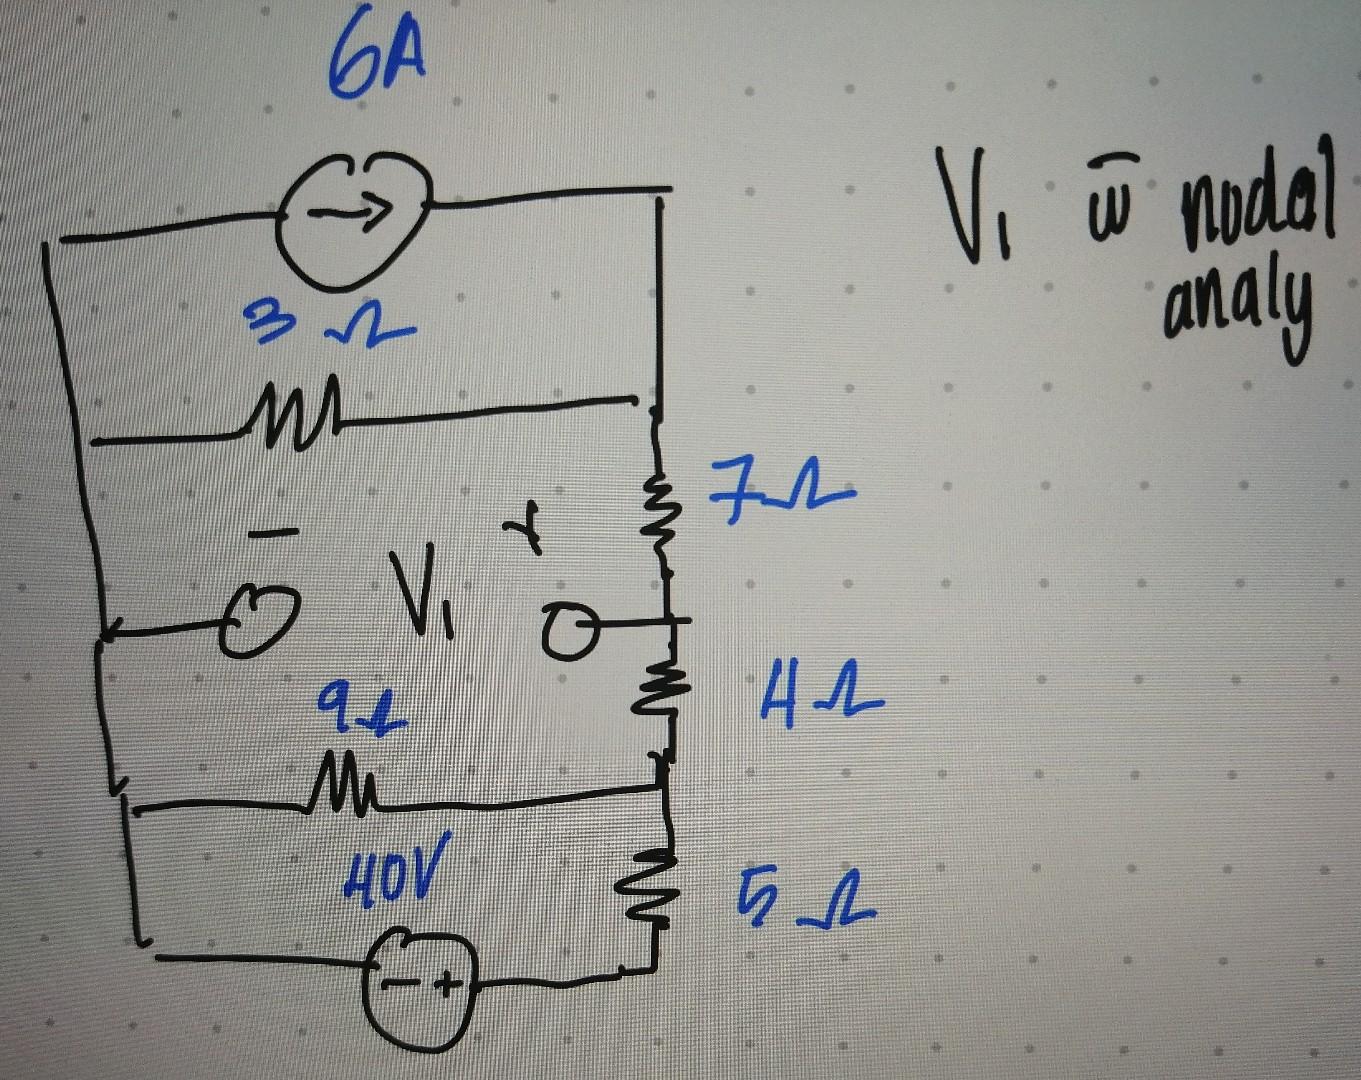 6A
V₁ w̄ nodal
analy
3 Ω
7Ω
− V₁ +
4Ω
9Ω
40V
5 Ω
− +